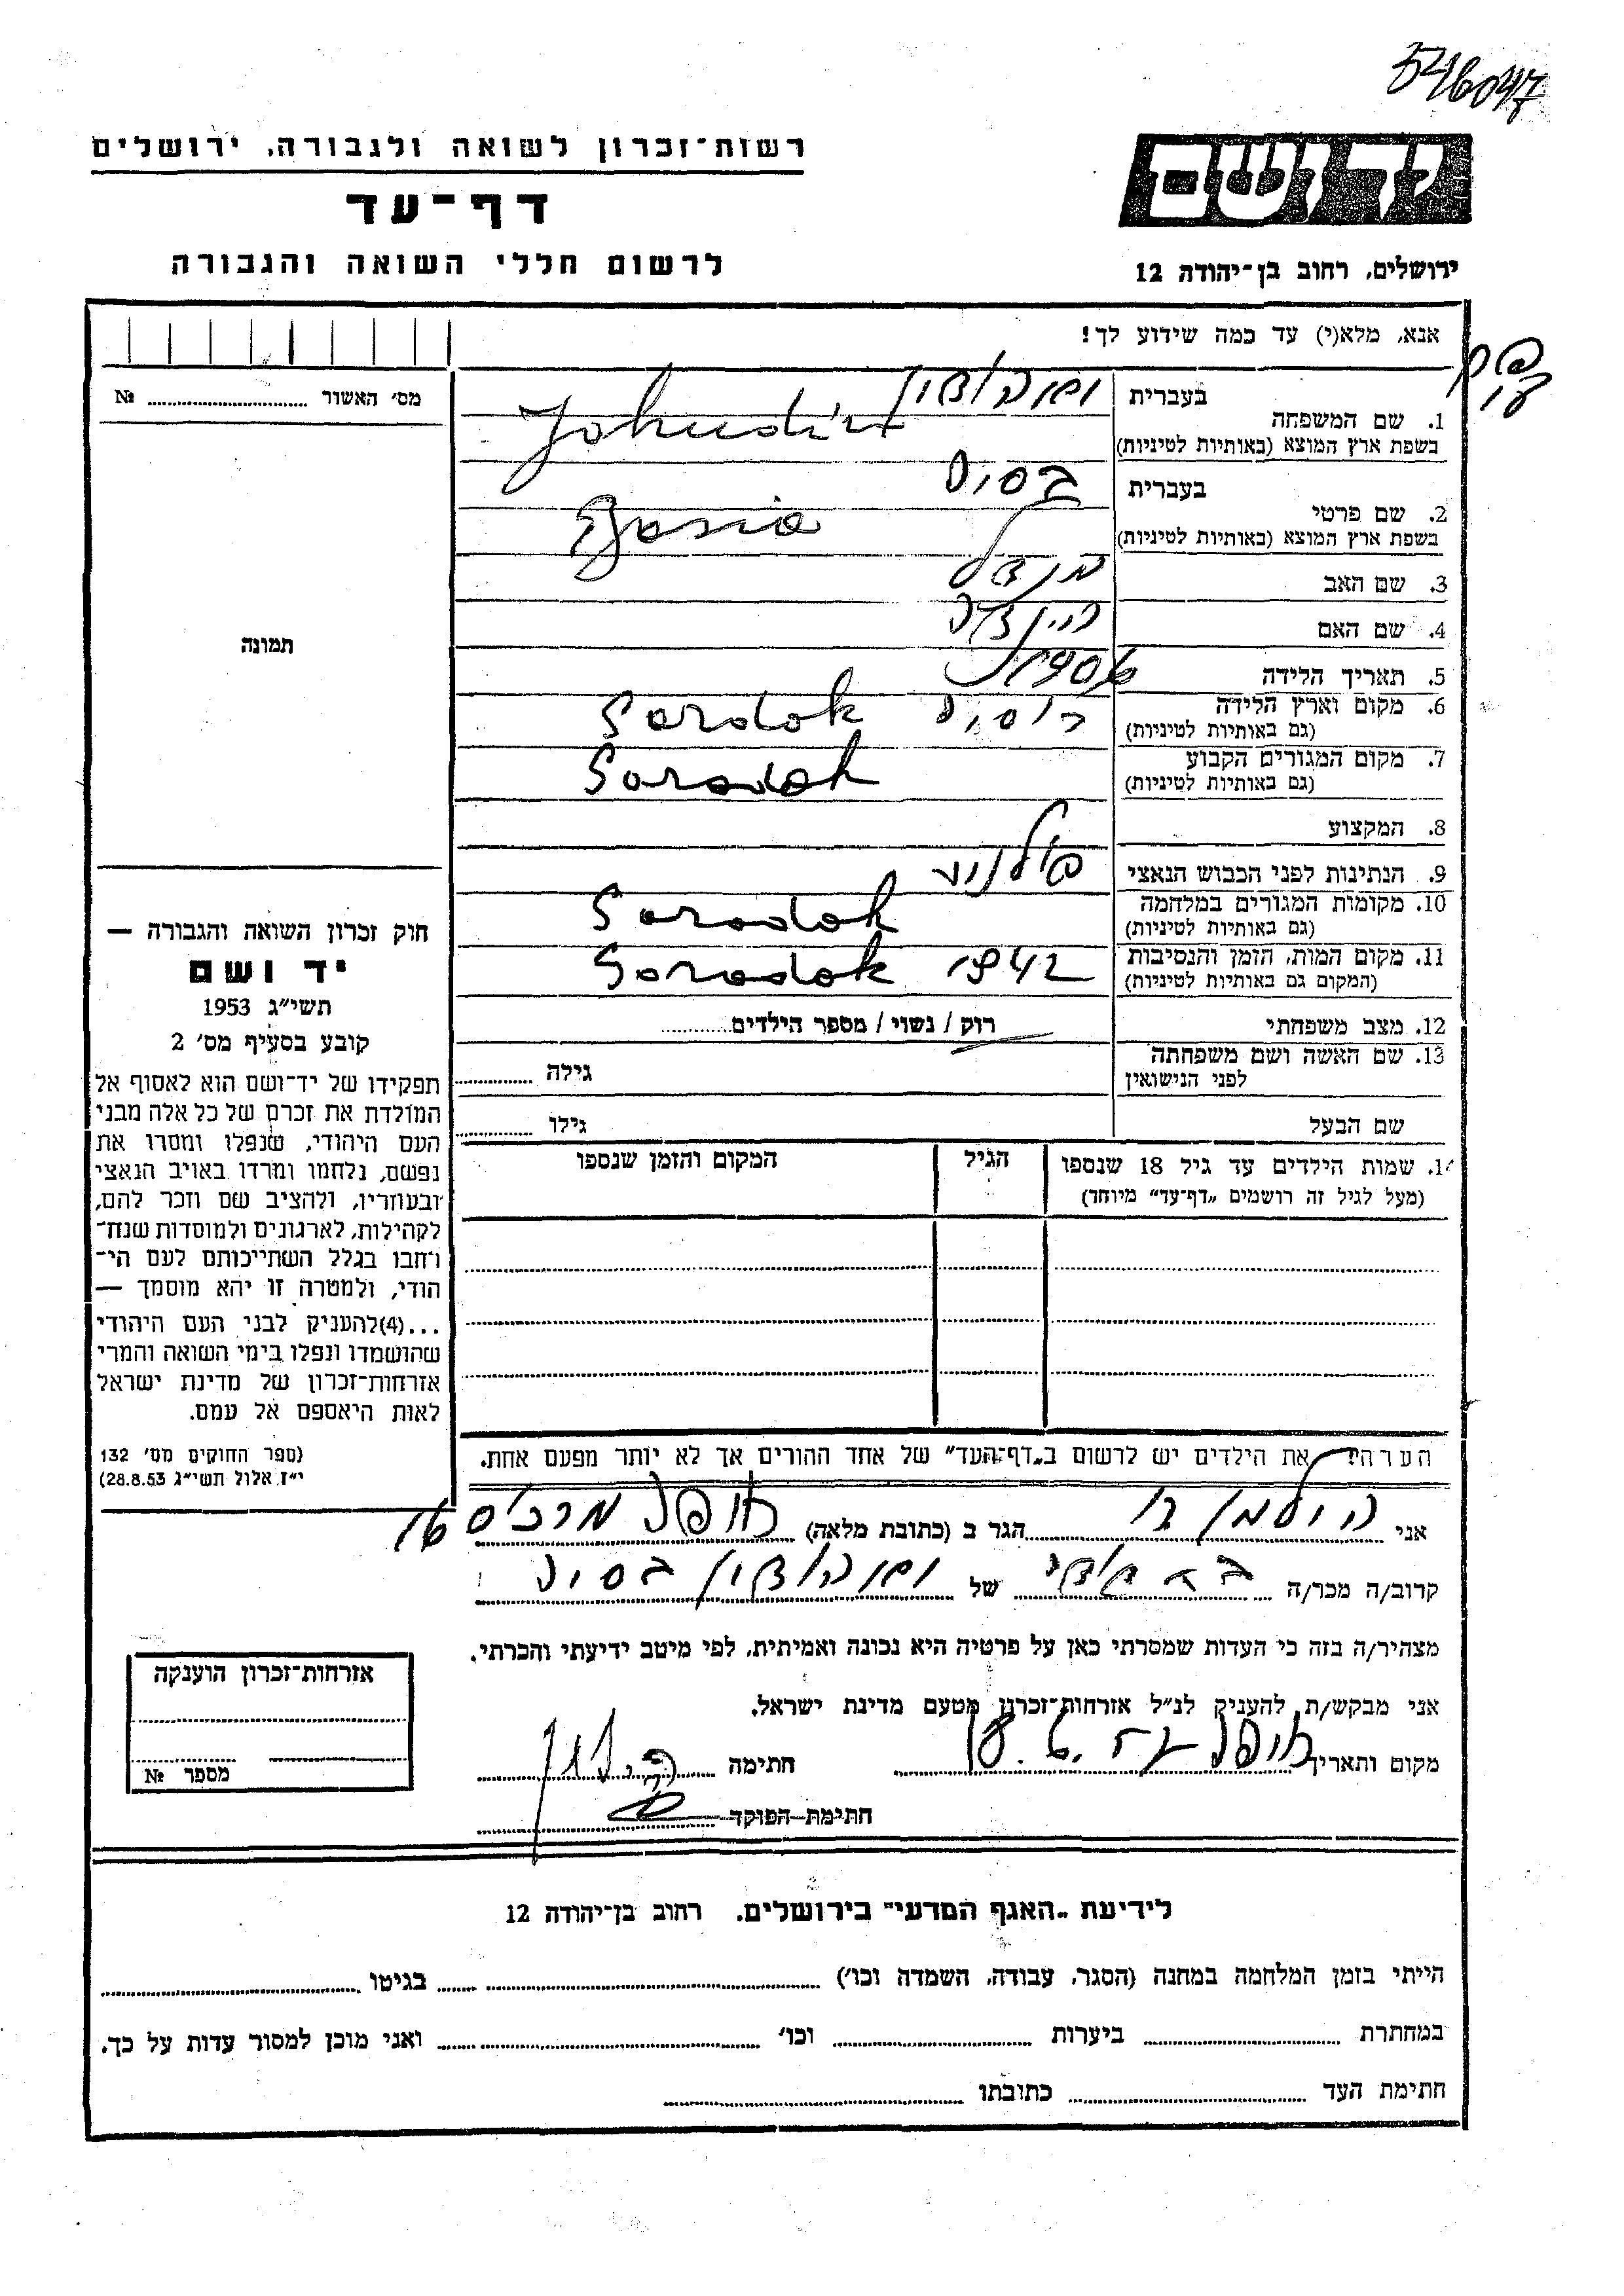 546047
רשות־זכרון לשואה ולגבורה, ירושלים
דף־עד
לרשום חללי השואה והגבורה
יד ושם
ירושלים, רחוב בן־יהודה 12
אנא, מלא(י) עד כמה שידוע לך!
מס׳ האשור № 
תמונה
1. שם המשפחה
בעברית
בשפת ארץ המוצא (באותיות לטיניות)
2. שם פרטי
בעברית בסיה
בשפת ארץ המוצא (באותיות לטיניות)
3. שם האב מנדל
4. שם האם הינדה
5. תאריך הלידה 1906
6. מקום וארץ הלידה רוסיה
(גם באותיות לטיניות)
7. מקום המגורים הקבוע
(גם באותיות לטיניות)
8. המקצוע
9. הנתינות לפני הכבוש הנאצי
10. מקומות המגורים במלחמה Gorodok
(גם באותיות לטיניות)
11. מקום המות, הזמן והנסיבות 1942 Gorodok
(המקום גם באותיות לטיניות)
12. מצב משפחתי רוק / נשוי / מספר הילדים
13. שם האשה ושם משפחתה גילה
לפני הנישואין
שם הבעל גילו
14. שמות הילדים עד גיל 18 שנספו הגיל המקום והזמן שנספו
(מעל לגיל זה רושמים „דף־עד״ מיוחד)
הערה: את הילדים יש לרשום ב„דף־העד״ של אחד ההורים אך לא יותר מפעם אחת.
חוק זכרון השואה והגבורה —
יד ושם
תשי״ג 1953
קובע בסעיף מס׳ 2
תפקידו של יד־ושם הוא לאסוף אל
המולדת את זכרם של כל אלה מבני
העם היהודי, שנפלו ומסרו את
נפשם, נלחמו ומרדו באויב הנאצי
ובעוזריו, ולהציב שם וזכר להם,
לקהילות, לארגונים ולמוסדות שנח־
רחבו בגלל השתייכותם לעם הי־
הודי, ולמטרה זו יהא מוסמך —
...(4)להעניק לבני העם היהודי
שהושמדו ונפלו בימי השואה והמרי
אזרחות־זכרון של מדינת ישראל
לאות היאספם אל עמם.
(ספר החוקים מס׳ 132
י״ז אלול תשי״ג 28.8.53)
אני הגר ב (כתובת מלאה) 16
קרוב/ה מכר/ה של בסיה
מצהיר/ה בזה כי העדות שמסרתי כאן על פרטיה היא נכונה ואמיתית, לפי מיטב ידיעתי והכרתי.
אני מבקש/ת להעניק לנ״ל אזרחות־זכרון מטעם מדינת ישראל.
מקום ותאריך חתימה
חתימת הפוקד
אזרחות־זכרון הוענקה
מספר №
לידיעת „האגף המדעי״ בירושלים. רחוב בן־יהודה 12
הייתי בזמן המלחמה במחנה (הסגר, עבודה, השמדה וכו׳) בגיטו
במחתרת ביערות וכו׳ ואני מוכן למסור עדות על כך.
חתימת העד כתובתו